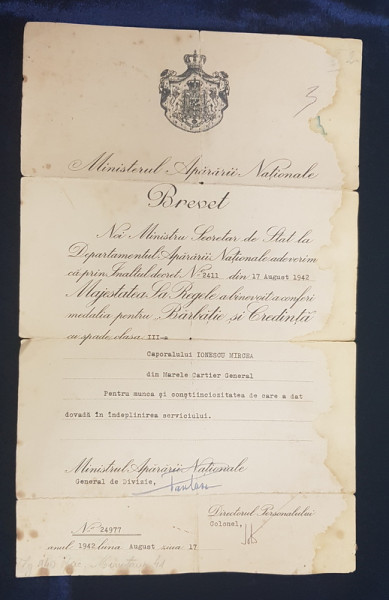 3
Ministerul Apărării Naționale
Brevet
Noi Ministru Secretar de Stat la
Departamentul Apărării Naționale adeverim
că prin Înaltul decret Nº 2411 din 17 August 1942
Majestatea Sa Regele a binevoit a conferi
medalia pentru „Bărbăție și Credință
cu spade clasa III-a
Caporalului IONESCU MIRCEA
din Marele Cartier General
Pentru munca și conștiinciozitatea de care a dat
dovadă în îndeplinirea serviciului.
Ministrul Apărării Naționale
General de Divizie,
Directorul Personalului
Colonel,
Nº 24977
anul 1942 luna August ziua 17